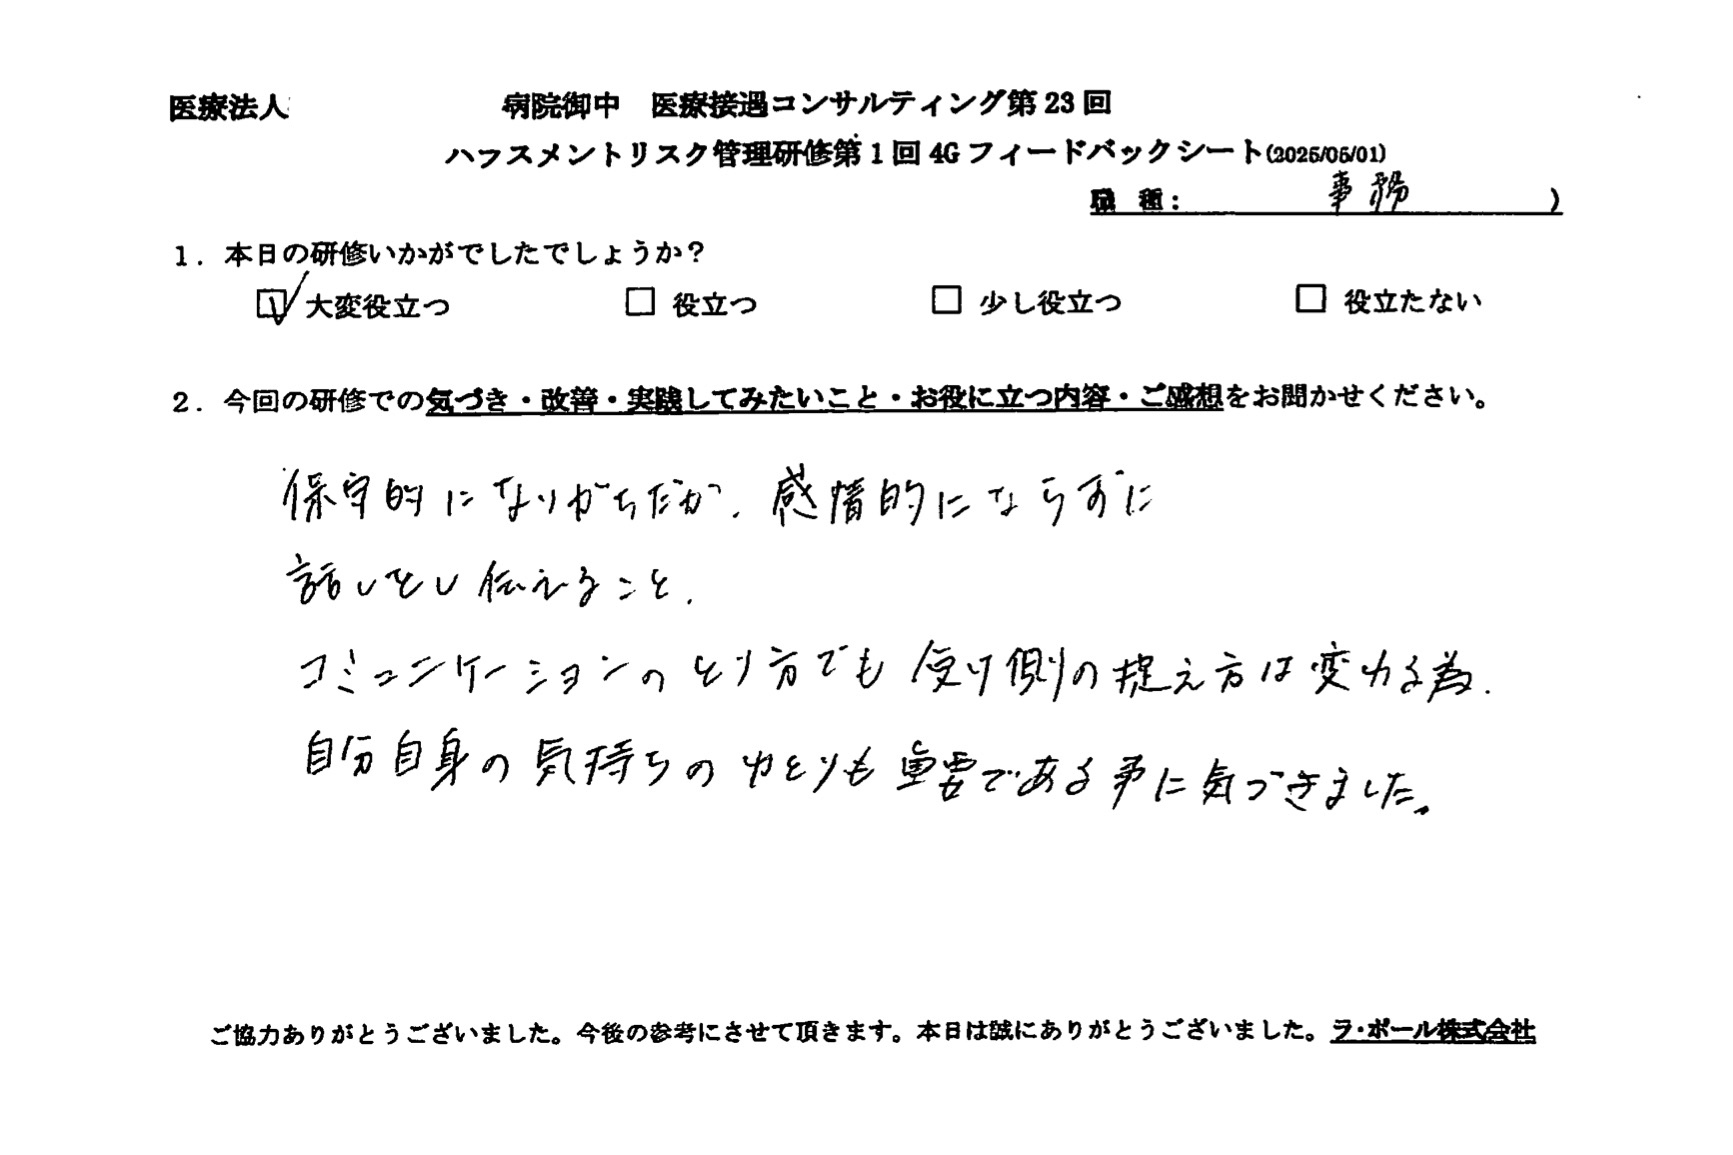 医療法人 病院御中 医療接遇コンサルティング第23回
ハラスメントリスク管理研修第1回4Gフィードバックシート(2025/05/01)
職 種: 事務 )
1. 本日の研修いかがでしたでしょうか?
☑ 大変役立つ □ 役立つ □ 少し役立つ □ 役立たない
2. 今回の研修での気づき・改善・実践してみたいこと・お役に立つ内容・ご感想をお聞かせください。
保守的になりがちだが、感情的にならずに
話しをし伝えること、
コミュニケーションのとり方でも受け側の捉え方は変わる為、
自分自身の気持ちのゆとりも重要である事に気づきました。
ご協力ありがとうございました。今後の参考にさせて頂きます。本日は誠にありがとうございました。ラ・ポール株式会社